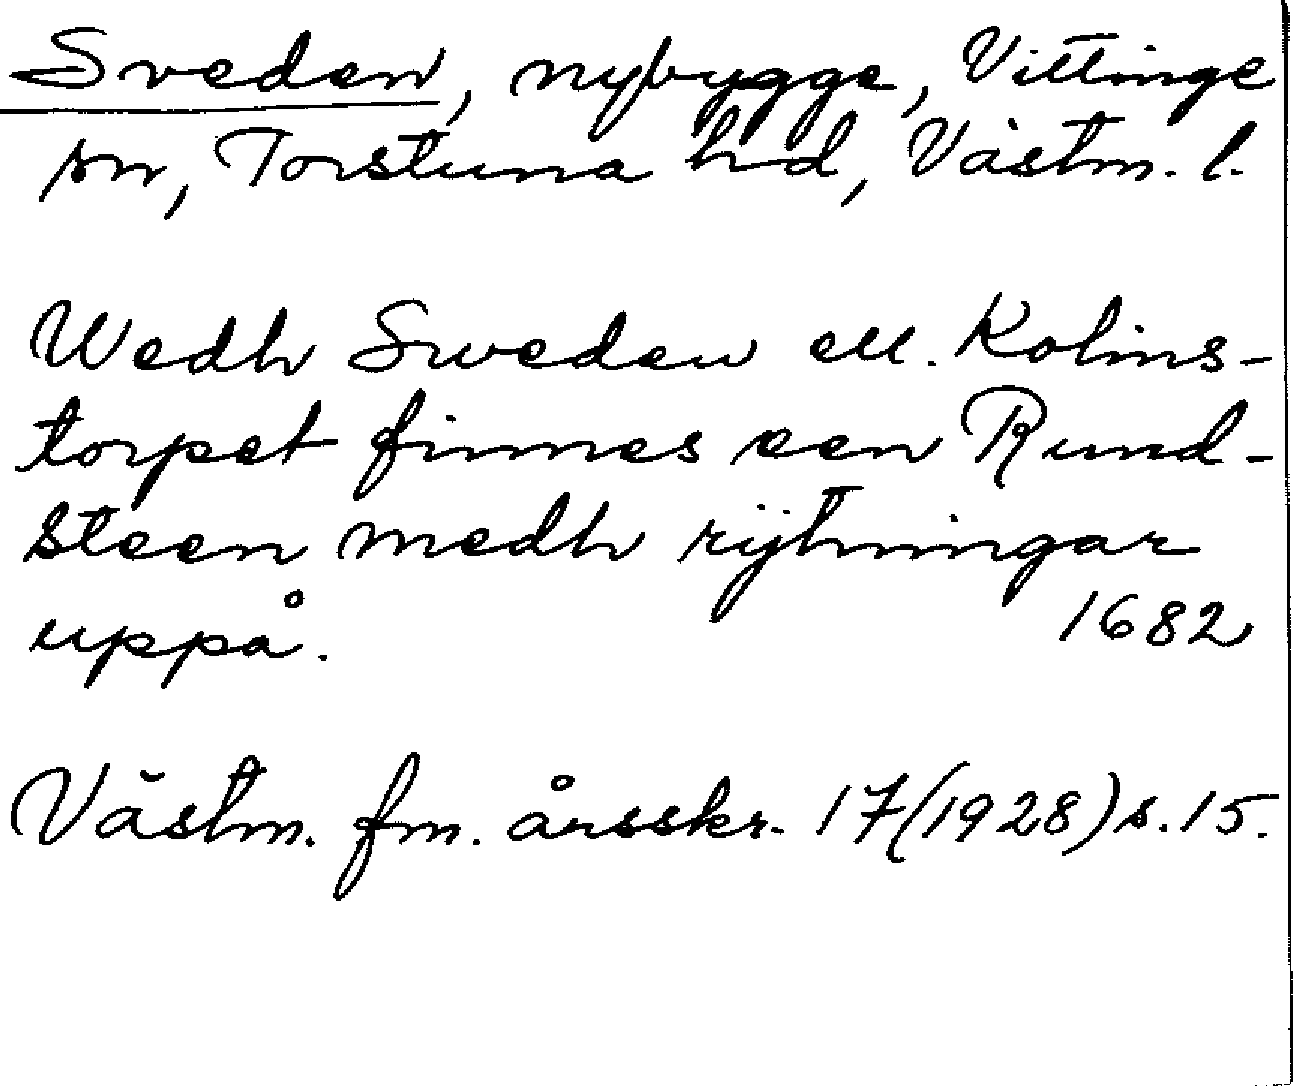 Sveden, nybygge, Vittinge
sn, Torstuna hd, Västm. l.
Wedh Sweden ell. Kolins-
torpet finnes een Rund-
steen medh rijtningar
uppå. 1682
Västm. fm. årsskr. 17(1928)s.15.